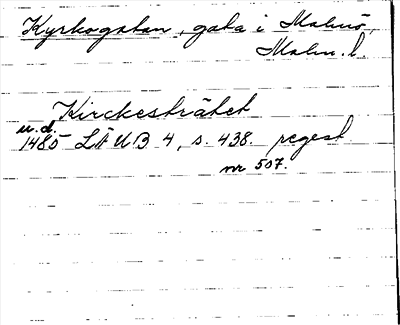 Kyrkogatan, gata i Malmö,
Malm. l.
Kirckesträtet
u.d.
1485 LÄUB 4, s. 438. regest
nr 507.